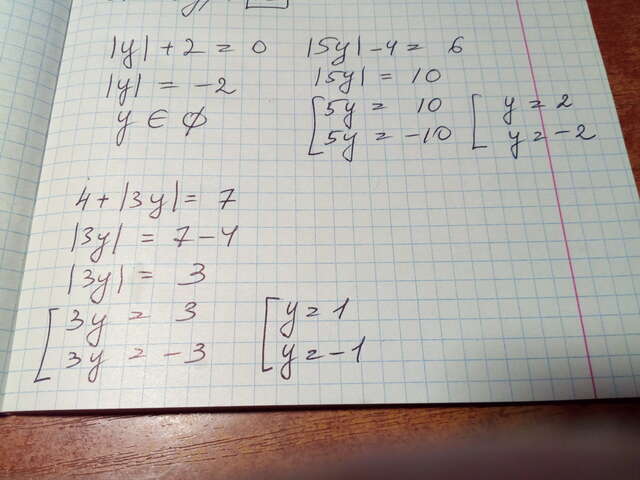 |y| + 2 = 0
|y| = -2
y ∈ ∅
|5y| - 4 = 6
|5y| = 10
[ 5y = 10 [ y = 2
5y = -10 y = -2
4 + |3y| = 7
|3y| = 7 - 4
|3y| = 3
[ 3y = 3 [ y = 1
3y = -3 y = -1